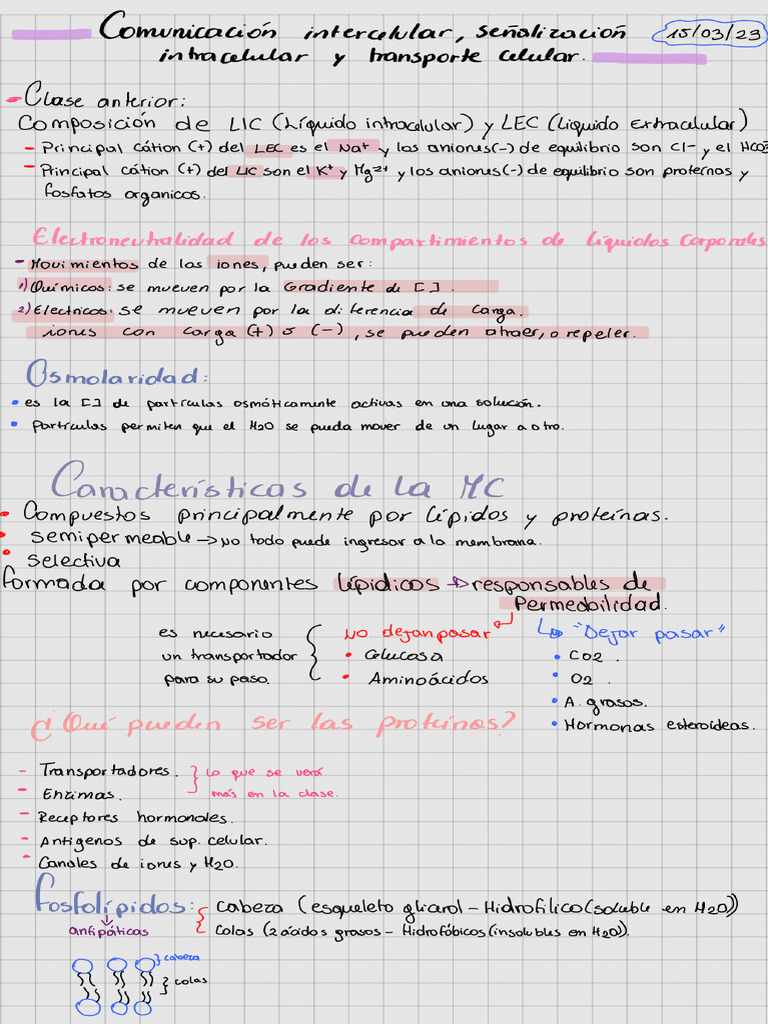 Comunicación intercelular, señalización
intracelular y transporte celular.
15/03/23
- Clase anterior:
Composición de LIC (Líquido intracelular) y LEC (Liquido Extracelular)
- Principal cátion (+) del LEC es el Na+ y los aniones(-) de equilibrio son Cl- y el HCO3
- Principal cátion (+) del LIC son el K+ y Mg2+ y los aniones(-) de equilibrio son proteínas y
fosfatos organicos.
Electroneutralidad de los compartimientos de líquidos corporales
- Movimientos de las iones, pueden ser:
1) Químicos: se mueven por la Gradiente de [ ].
2) Electricos: se mueven por la diferencia de carga.
iones con carga (+) o (-), se pueden atraer, o repeler.
Osmolaridad:
• es la [ ] de partículas osmóticamente activas en una solución.
• Partículas permiten que el H2O se pueda mover de un lugar a otro.
Características de la MC
• Compuestos principalmente por lípidos y proteínas.
• semipermeable → No todo puede ingresar a la membrana.
• selectiva
formada por componentes lípidicos → responsables de
Permeabilidad.
es necesario
un transportador
para su paso.
NO dejan pasar
• Glucosa
• Aminoácidos
"Dejar pasar"
• CO2.
• O2.
• A. grasos.
• Hormonas esteroideas.
¿Qué pueden ser las proteínas?
- Transportadores.
- Enzimas.
lo que se verá
más en la clase.
- Receptores hormonales.
- Antigenos de sup. celular.
- Canales de iones y H2O.
Fosfolípidos:
anfipáticas
cabeza (esqueleto glicerol - Hidrofílico (soluble en H2O))
Colas (2 ácidos grasos - Hidrofóbicos (insolubles en H2O)).
cabeza
colas